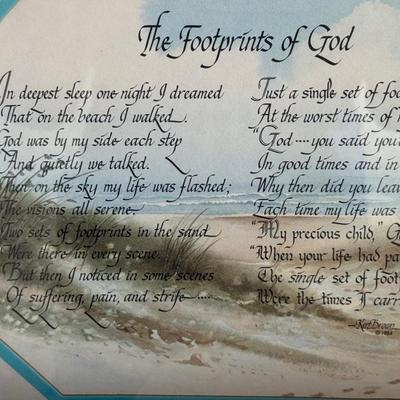 The Footprints of God
In deepest sleep one night I dreamed
That on the beach I walked.
God was by my side each step
And quietly we talked.
Then on the sky my life was flashed;
The visions all serene.
Two sets of footprints in the sand
Were there in every scene.
But then I noticed in some scenes
Of suffering, pain, and strife ....
Just a single set of foo
At the worst times of
"God ---- you said you
In good times and in
Why then did you leav
Each time my life was
"My precious child," G
"When your life had pa
The single set of foot
Were the times I carr